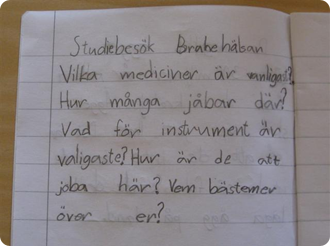 Studiebesök Brahehälsan
Vilka mediciner är vanligast?
Hur många jåbar där?
Vad för instrument är
valigaste? Hur är de att
joba här? Vem bästemer
över er?